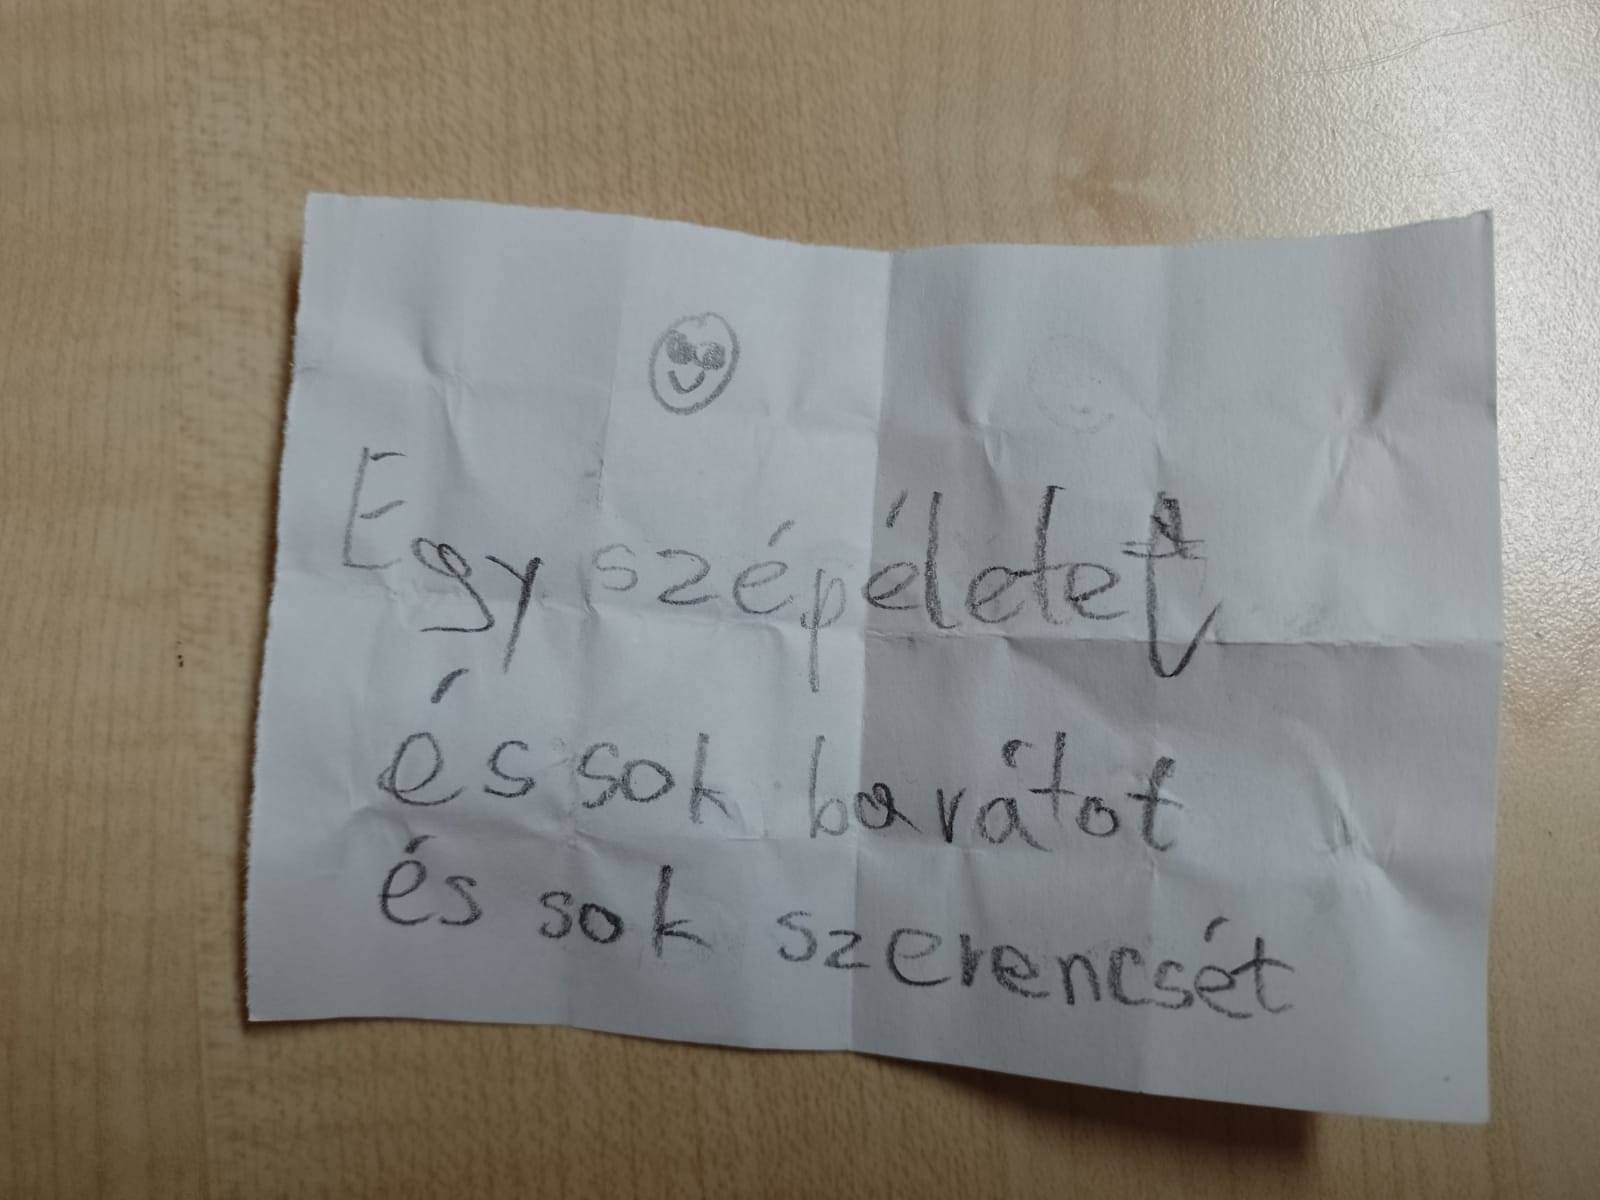 Egy szép életet
és sok barátot
és sok szerencsét